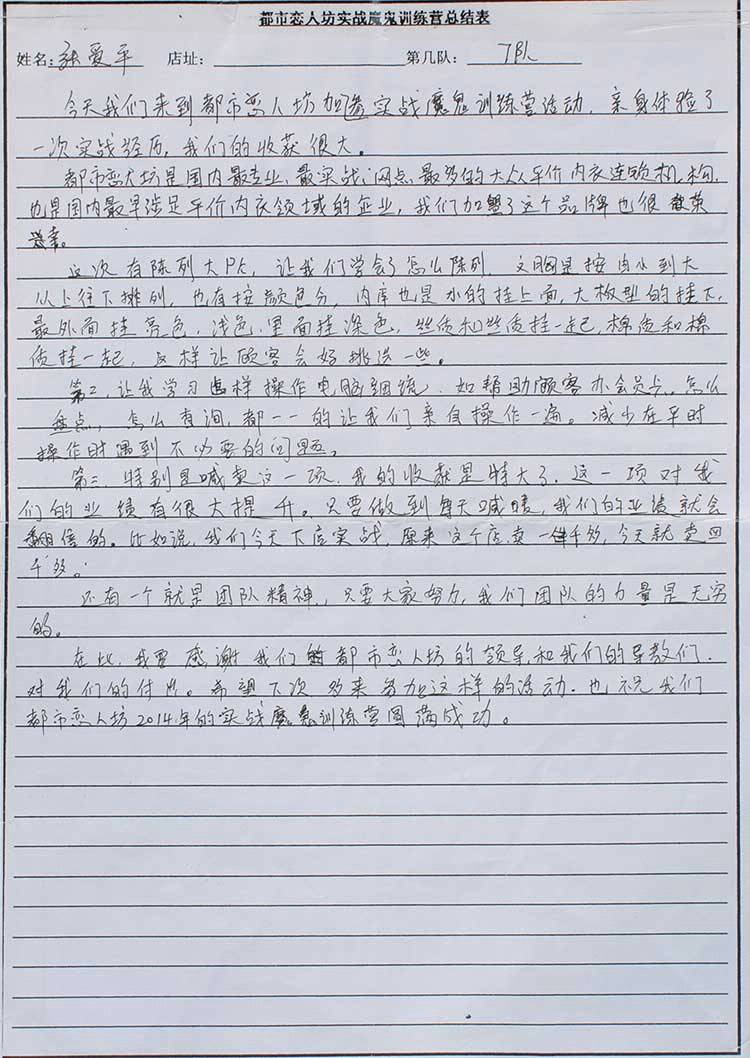 都市恋人坊实战魔鬼训练营总结表
姓名:张爱平 店址: 第几队: 7队
今天我们来到都市恋人坊加盟实战魔鬼训练营活动,亲身体验了
一次实战经历,我们的收获很大。
都市恋人坊是国内最专业、最实战、网点最多的大众平价内衣连锁机构,
也是国内最早涉足平价内衣领域的企业,我们加盟了这个品牌也很荣
幸。
这次有陈列大PK,让我们学会了怎么陈列,文胸是按由小到大
从上往下排列,也有按颜色分,内库也是小的挂上面,大板型的挂下,
最外面挂亮色,浅色,里面挂深色,丝质和丝质挂一起,棉质和棉
质挂一起,这样让顾客会好挑选一些。
第二,让我学习怎样操作电脑系统,如帮助顾客办会员卡,怎么
盘点,怎么查询,都一一的让我们亲自操作一遍。减少在平时
操作时遇到不必要的问题。
第三,特别是喊卖这一项,我的收获是特大了,这一项对我
们的业绩有很大提升。只要做到每天喊麦,我们的业绩就会
翻倍的。比如说,我们今天下店实战,原来这个店卖一千多,今天就卖四
千多。
还有一个就是团队精神,只要大家努力,我们团队的力量是无穷
的。
在此,我要感谢我们都市恋人坊的领导,和我们的导教们,
对我们的付出。希望下次多来参加这样的活动.也祝我们
都市恋人坊2014年的实战魔鬼训练营圆满成功。